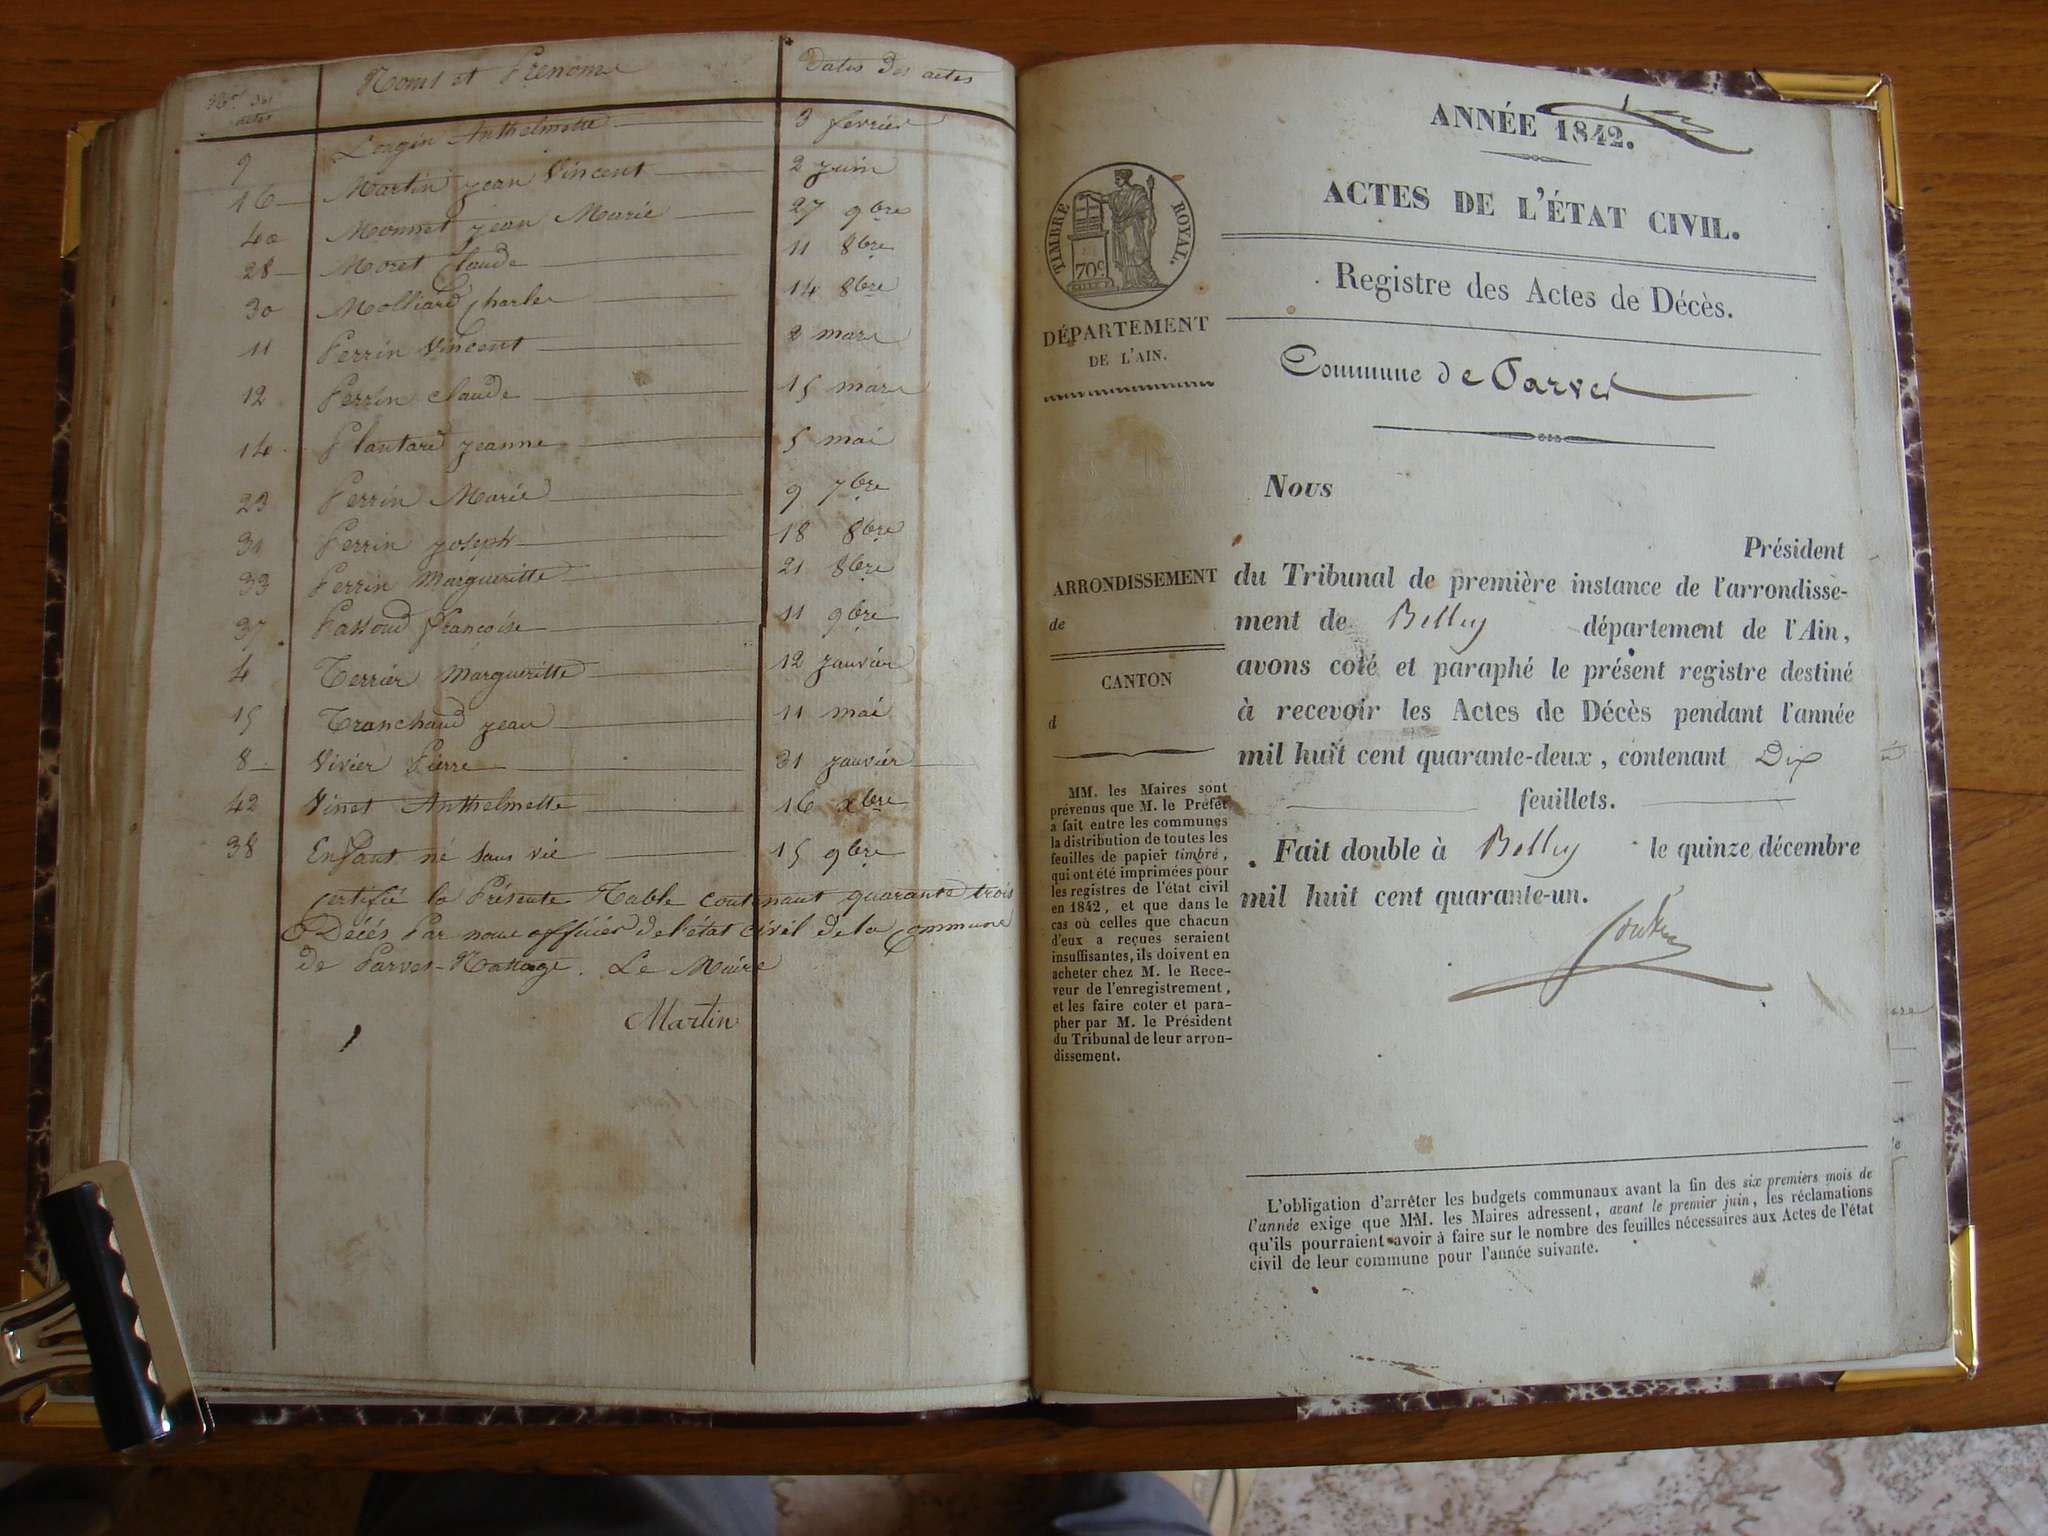 Nos des actes | Noms et Prenoms | Dates des actes
9 Longin Anthelmette 3 fevrier
16 Martin jean Vincent 2 juin
40 Monnet jean Marie 27 9bre
28 Moret Claude 11 8bre
30 Molliard Charles 14 8bre
11 Perrin Vincent 2 mars
12 Perrin Claude 15 mars
14 Plantard jeanne 5 mai
23 Perrin Marie 9 7bre
31 Perrin joseph 18 8bre
33 Perrin Margueritte 21 8bre
37 Passoud Françoise 11 9bre
4 Terrier Margueritte 12 janvier
15 Tranchand jean 11 mai
8 Vivier Pierre 31 janvier
42 Vinet Anthelmette 16 xbre
38 Enfant né sans vie 15 9bre
certifié la Présente Table contenant quarante trois
Décés Par nous officier de l'état civil de la Commune
de Parves-Nattage. Le Maire
Martin
ANNÉE 1842.
ACTES DE L'ÉTAT CIVIL.
Registre des Actes de Décès.
Commune de Parves
TIMBRE ROYAL.
70c
DÉPARTEMENT
DE L'AIN.
ARRONDISSEMENT
de
CANTON
d
MM. les Maires sont
prévenus que M. le Préfet
a fait entre les communes
la distribution de toutes les
feuilles de papier timbré,
qui ont été imprimées pour
les registres de l'état civil
en 1842, et que dans le
cas où celles que chacun
d'eux a reçues seraient
insuffisantes, ils doivent en
acheter chez M. le Rece-
veur de l'enregistrement,
et les faire coter et para-
pher par M. le Président
du Tribunal de leur arron-
dissement.
Nous
Président
du Tribunal de première instance de l'arrondisse-
ment de Belley département de l'Ain,
avons coté et paraphé le présent registre destiné
à recevoir les Actes de Décès pendant l'année
mil huit cent quarante-deux, contenant Dix
feuillets.
Fait double à Belley le quinze décembre
mil huit cent quarante-un.
L'obligation d'arrêter les budgets communaux avant la fin des six premiers mois de
l'année exige que MM. les Maires adressent, avant le premier juin, les réclamations
qu'ils pourraient avoir à faire sur le nombre des feuilles nécessaires aux Actes de l'état
civil de leur commune pour l'année suivante.